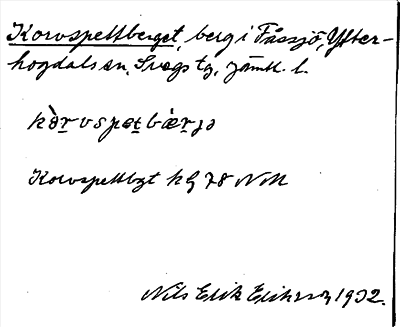 Korvspettberget, berg i Fåssjö, Ytter-
hogdals sn, Svegs tg, Jämtl. l.
kòrvspetbæ̀rjə
Korvspettbgt hg 78 NM
Nils Erik Eriksson 1932.